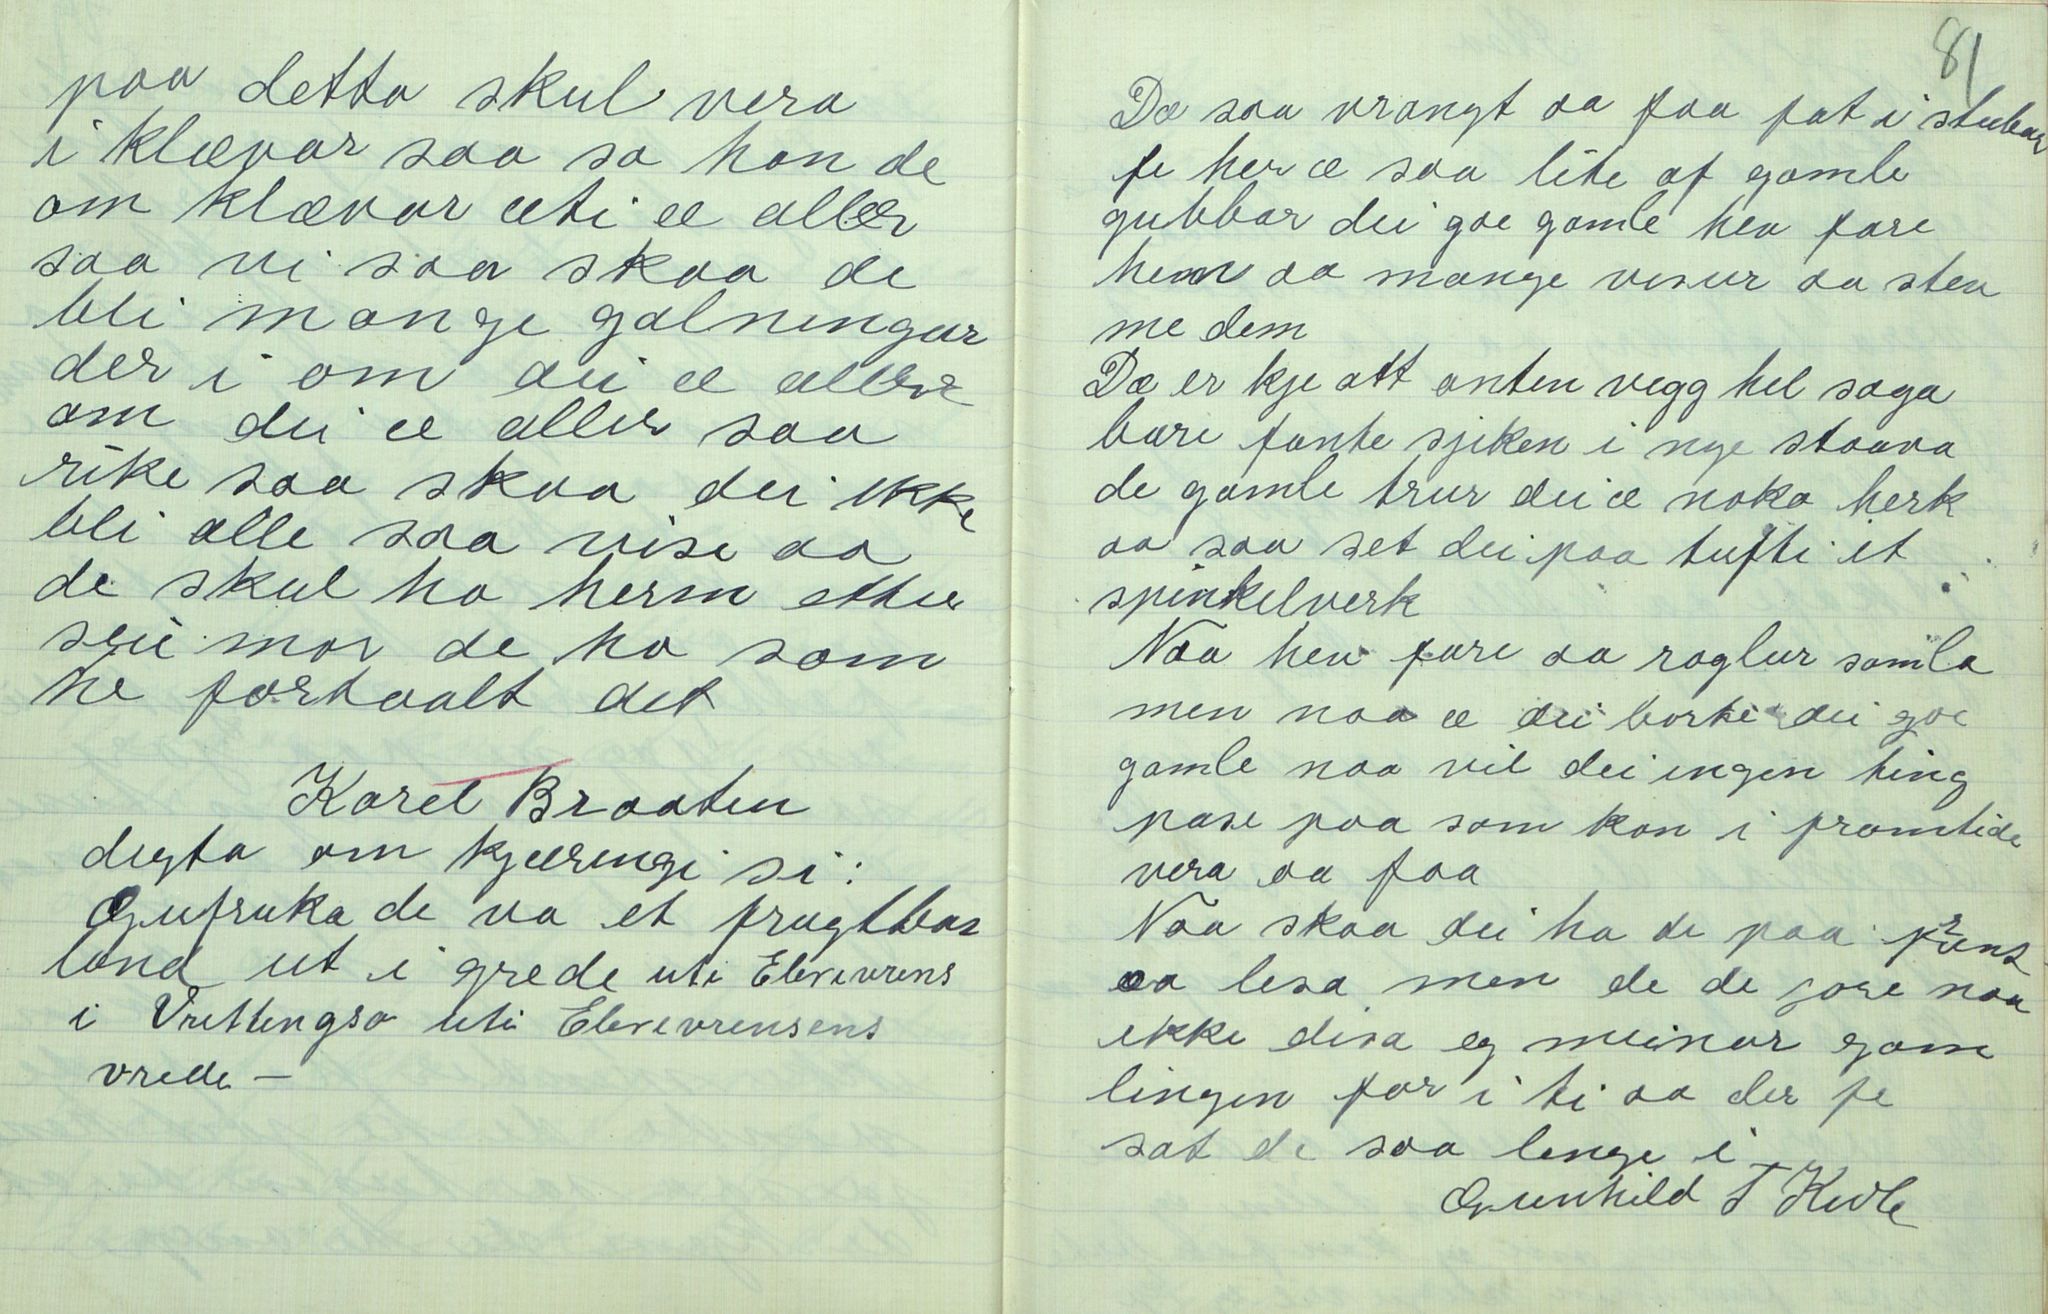 paa detta skul vera
i klævar saa sa han de
om klævar uti æ aller
saa vi saa skaa de
bli mange galningar
der i om dei æ aller
om dei æ aller saa
rike saa skaa dei ikke
bli alle saa vise aa
de skul ha herm etter
sei mor de ha som
he fortaalt det
Karel Braaten
digta om kjæringi si:
Gufruka de va et frugtbar
land ut i grede uti Elevevrens
i Vrettengso uti Elevevrensens
vrede —
81
Dæ saa vrangt aa faa fat i stubar
fe her æ saa lite af gamle
gubbar dei goe gamle hev fare
hem aa mange visur aa stev
me dem
Dæ er kje att anten vegg hel saga
bare fante sjiken i nye staava
de gamle trur dei æ noko herk
aa saa set dei paa tufti et
spinkelverk
Naa hev fare aa raglur samla
men naa æ dei borte dei goe
gamle naa vil dei ingen ting
pase paa som kan i framtide
vera aa faa
Naa skaa dei ha de paa prent
aa lesa men de de gore naa
ikke disa eg meinar gam
lingen for i ti aa der fe
sat de saa lenge i
Gunhild T Kivle